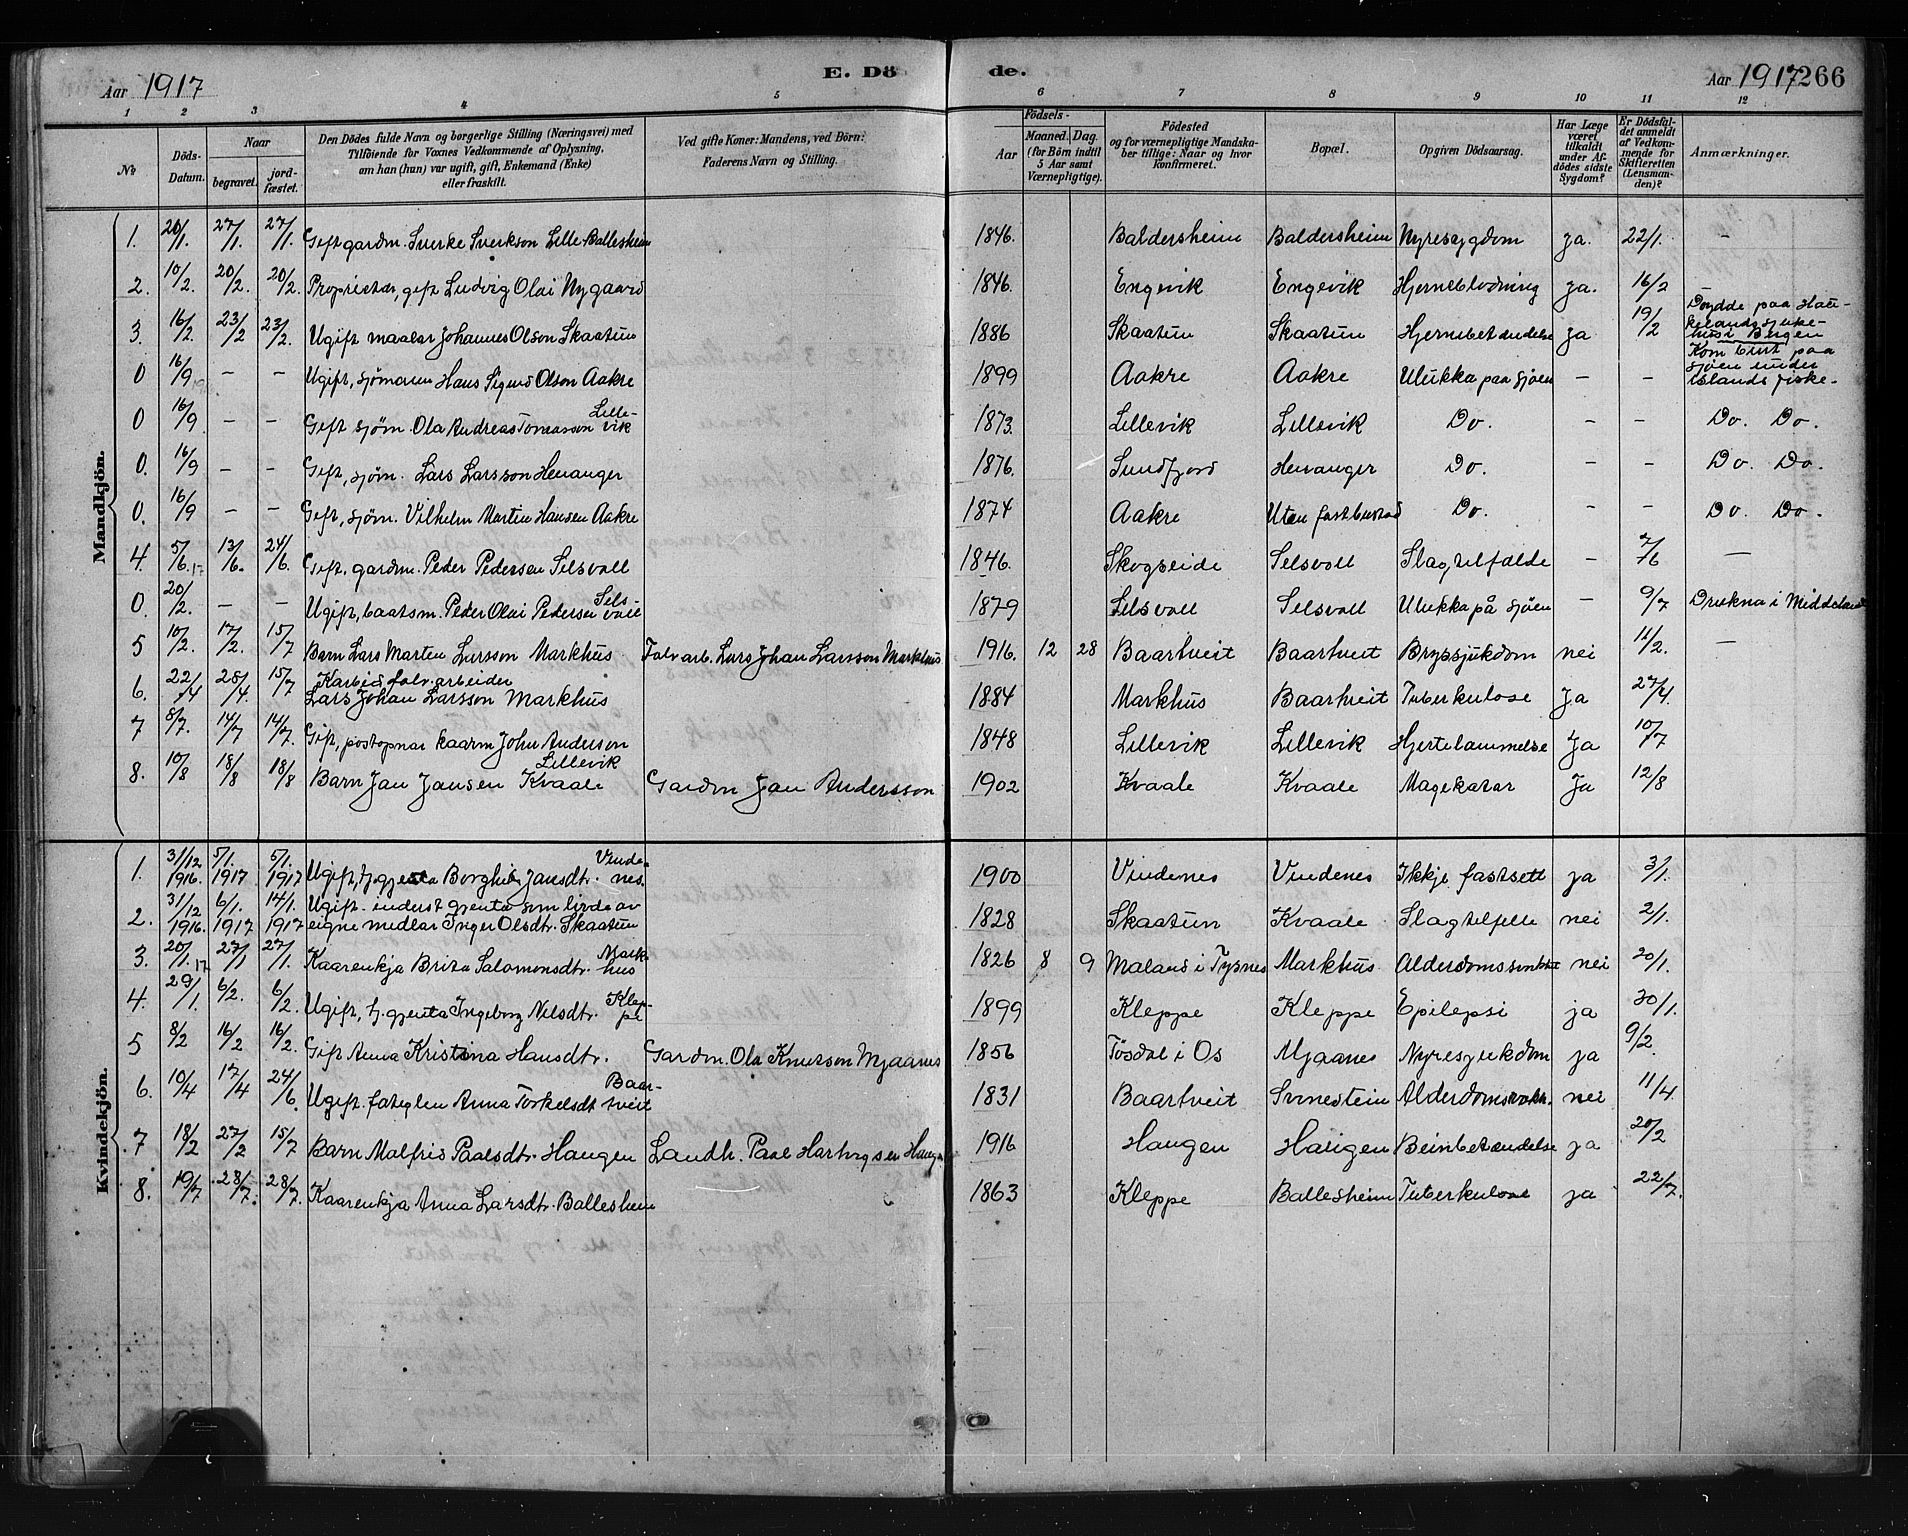 Aar 1917 E. Dö de. Aar 1917 266
1 2 3 4 5 6 7 8 9 10 11 12
No
Döds-Datum.
Naar
begravet.
jord-fæstet.
Den Dödes fulde Navn og borgerlige Stilling (Næringsvei) med
Tilföiende for Voxnes Vedkommende af Oplysning,
om han (hun) var ugift, gift, Enkemand (Enke)
eller fraskilt.
Ved gifte Koner: Mandens, ved Börn:
Faderens Navn og Stilling.
Födsels-
Aar
Maaned. Dag.
(for Börn indtil
5 Aar samt
Værnepligtige).
Födested
og for værnepligtige Mandska-
ber tillige: Naar og hvor
konfirmeret.
Bopæl.
Opgiven Dödsaarsag.
Har Læge
været
tilkaldt
under Af-
dödes sidste
Sygdom?
Er Dödsfal-
det anmeldt
af Vedkom-
mende for
Skifteretten
(Lensman-
den)?
Anmærkninger.
Mandkjön.
1. 20/1. 27/1. 27/1. Gift gardm. Sverke Sverkson Lille-Ballesheim 1846. Baldersheim Baldersheim Nyresygdom ja. 22/1. –
2. 10/2. 20/2. 20/2. Proprietær, gift Ludvig Olai Nygaard 1846. Engevik Engevik Hjerneblødning ja. 16/2 –
3. 16/2. 23/2 23/2. Ugift maalar Johannes Olson Skaatun 1886 Skaatun Skaatun Hjernebetændelse ja 19/2 Døydde paa Hau-
kelands sjuke-
hus i Bergen
0 16/9 – – Ugift, sjømann Hans Sigurd Olson Aakre 1899 Aakre Aakre Ulukka paa sjøen – – Kom burt paa
sjøen under
Islands fiske.
0 16/9. – – Gift sjøm. Ola Andreas Tomasson Lille-
vik 1873. Lillevik Lillevik Do. – – Do. Do.
0. 16/9 – – Gift, sjøm. Lars Larsson Hevanger 1876. Sundfjord Hevanger Do. – – Do. Do.
0. 16/9 – – Gift, sjøm. Vilhelm Martin Hansen Aakre 1874 Aakre Uten fast bustad Do. – – Do. Do.
4. 5/6.17 13/6. 24/6. Gift. gardm. Peder Pedersen Selsvoll 1846. Skogseide Selsvoll Slagtilfælde – 7/6 –
0. 20/2. – – Ugift, baatsm. Peder Olai Pedersen Sels-
voll 1879 Selsvoll Selsvoll Ulukka på sjøen – 9/7 Drukna i Middeland
5 10/2. 17/2. 15/7 Barn Lars Marten Larsson Markhus Falv. arb. Lars Johan Larsson Markhus 1916. 12 28 Baartveit Baartveit Brystsjukdom nei 11/2. –
6. 22/4 28/4. 15/7 Karbid falv. arbeider
Lars Johan Larsson Markhus 1884 Markhus Baartveit Tuberkulose Ja 27/4.
7 8/7. 14/7 14/7. Gift, postopnar kaarm John Anderson
Lillevik 1848 Lillevik Lillevik Hjertelammelse Ja 10/7
8. 10/8 18/8 18/8 Barn Jan Jansen Kvaale Gardm Jan Andersson 1902 Kvaale Kvaale Magekatar Ja 12/8
Kvindekjön.
1. 31/12 1916. 5/1. 1917 5/1. 1917 Ugift, tj.gjenta Borghild Jansdtr. Vinde-
nes. 1900 Vindenes Vindenes Ikkje fastsett ja 3/1.
2. 31/12 1916. 6/1. 1917 14/1. 1917 Ugift inderst gjenta som livde av
eigne midlar Inger Olsdtr. Skaatun 1828 Skaatun Kvaale Slagtilfelle nei 2/1.
3. 20/1.17 27/1 27/1. Kaarenkja Brita Salomonsdtr. Mark-
hus 1826 8 9 Maland i Tysnes Markhus Alderdomssvækkelse nei 20/1.
4. 29/1 6/2. 6/2. Ugift, tj.gjenta Ingeborg Nilsdtr. Klep-
pe 1899 Kleppe Kleppe Epilepsi ja 30/1.
5 8/2 16/2 16/2. Gift Anna Kristina Hansdtr. Gardm. Ola Knutson Mjaanes 1856 Tøsdal i Os Mjaanes Nyresjukdom ja 9/2.
6. 10/4 17/4 24/6. Ugift fatiglem Anna Torkelsdt Baar-
tveit 1831 Baartveit Svinestein Alderdomssvækk. nei 11/4
7 18/2 27/2 15/7 Barn Malfrid Paalsdtr. Haugen Landh. Paal Hartvigsen Haugen 1916 Haugen Haugen Beinbetændelse ja 20/2
8. 19/7 28/7. 28/7. Kaarenkja Anna Larsdtr. Ballesheim 1863 Kleppe Ballesheim Tuberkulose ja 22/7.